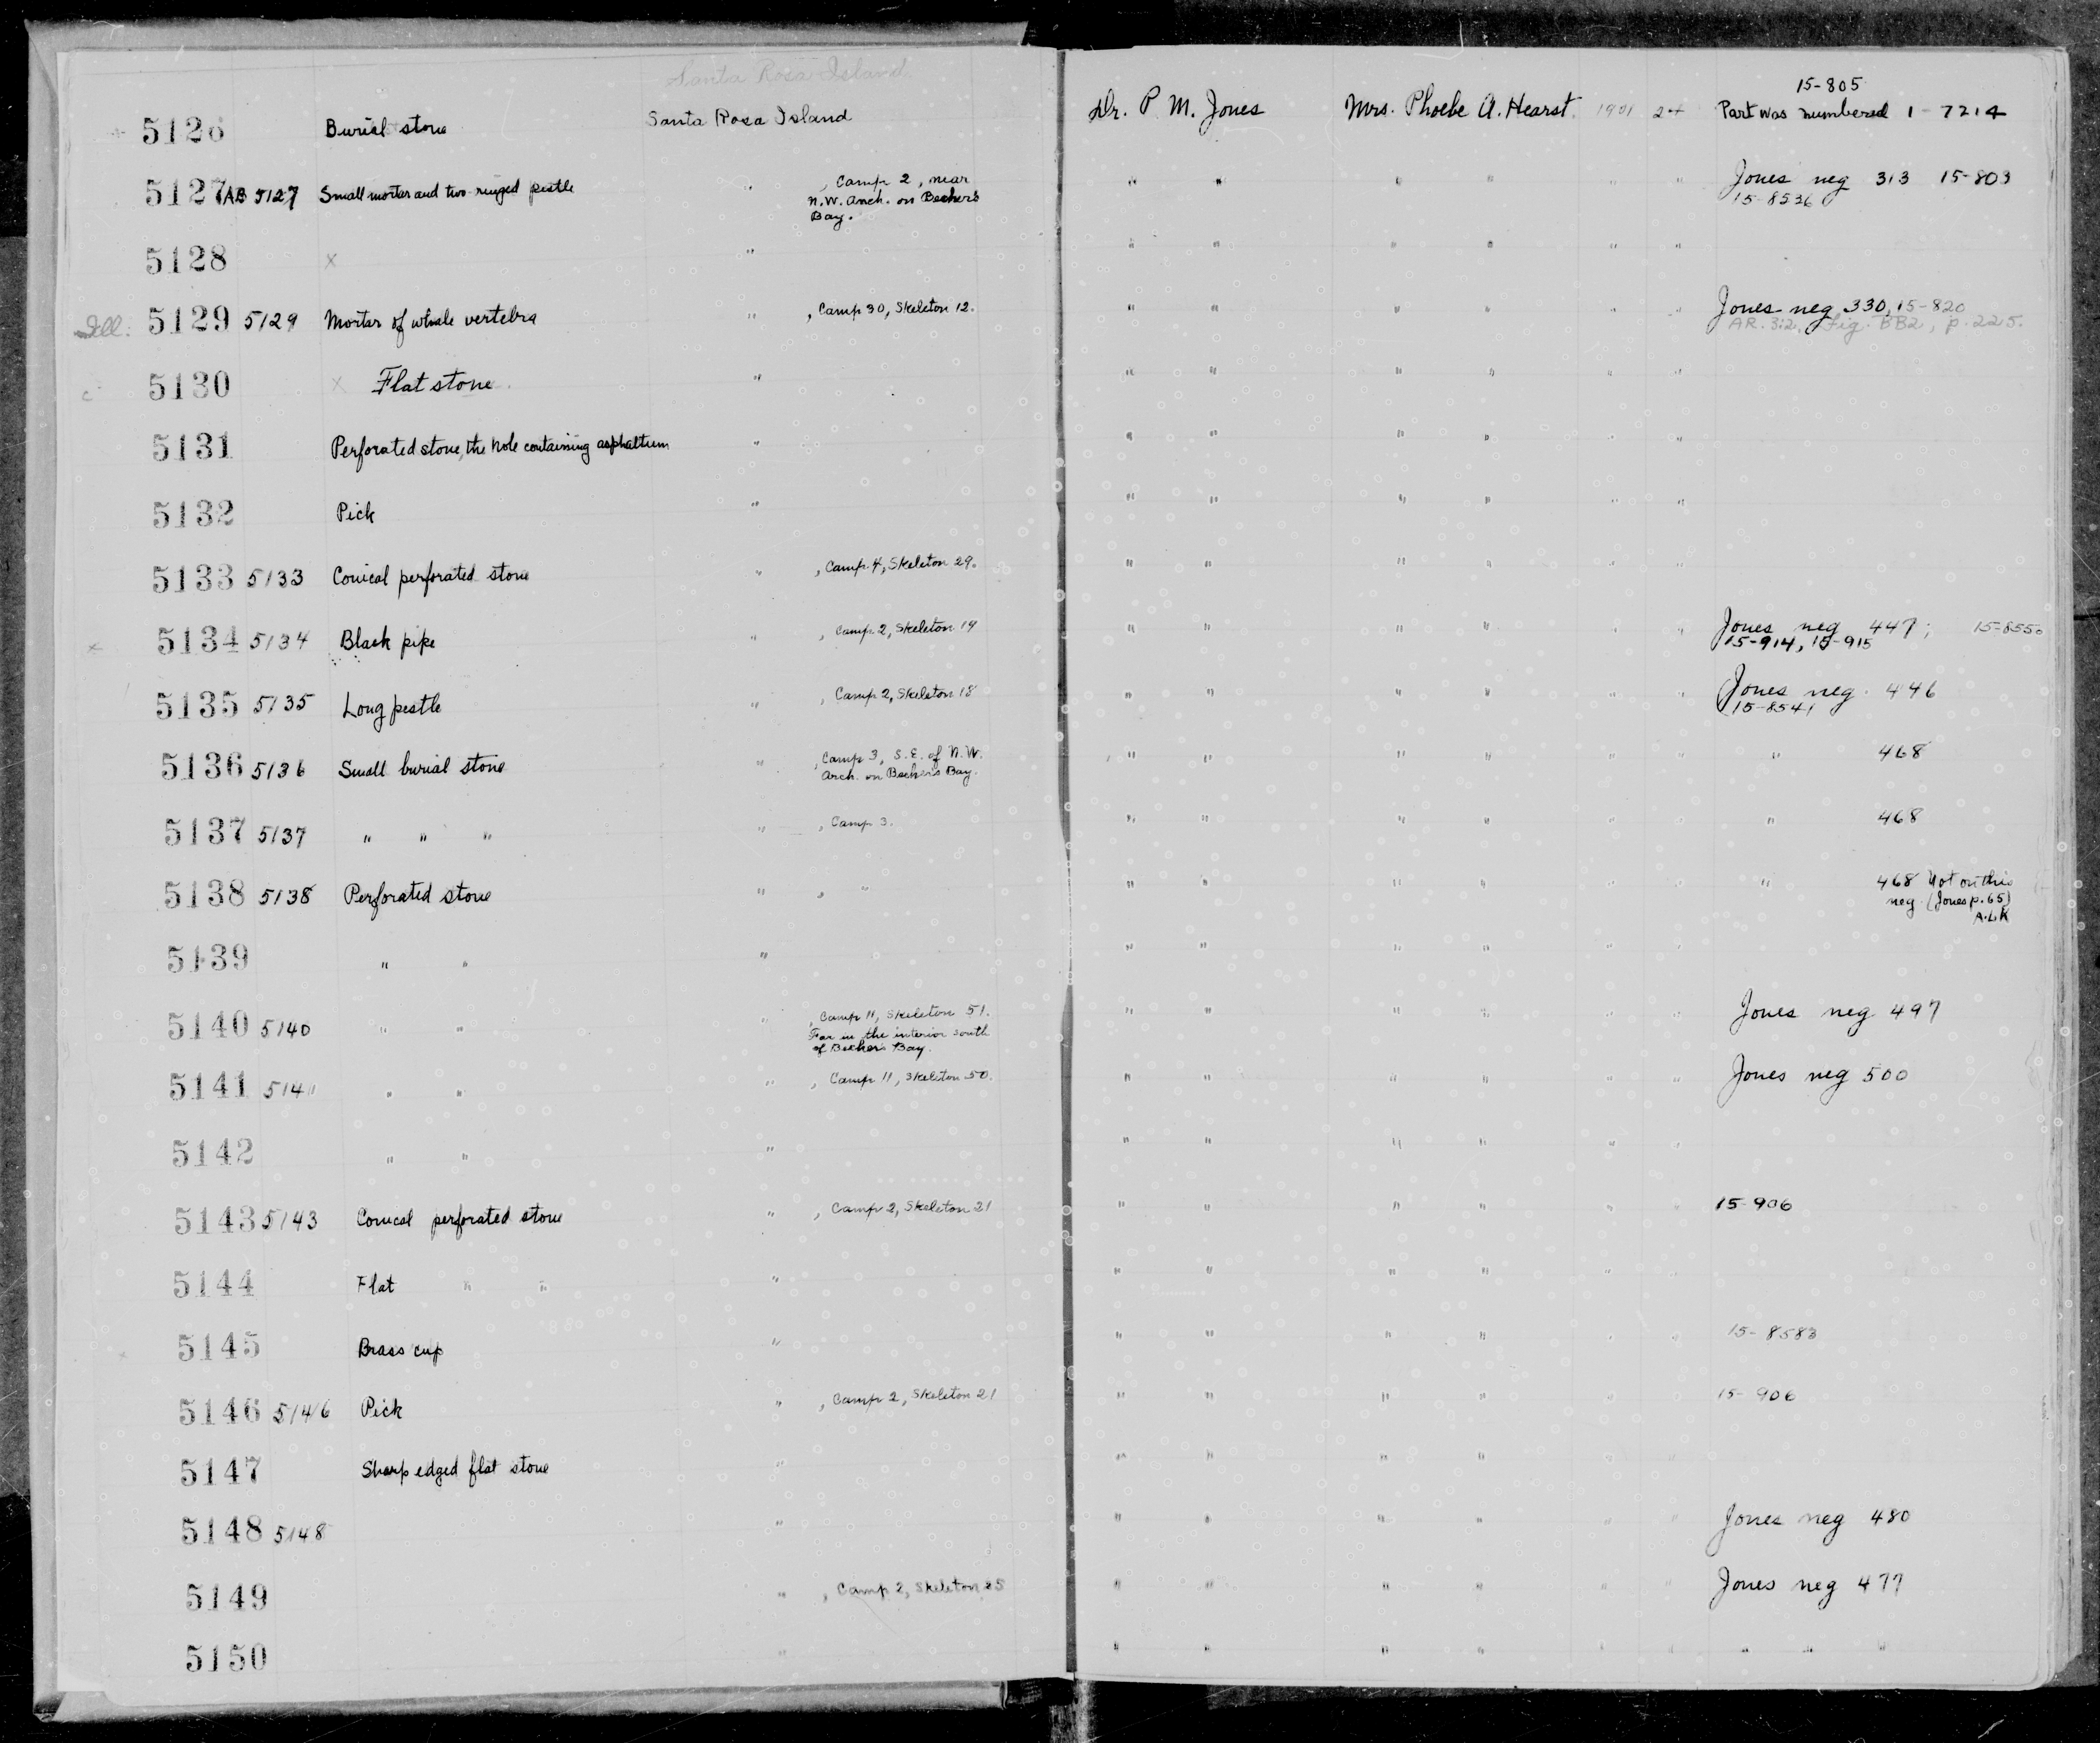 Santa Rosa Island
5126 Burial stone Santa Rosa Island Dr. P. M. Jones Mrs. Phoebe A. Hearst 1901 24 Part was numbered 1-7214
15-805
5127 AB 5127 Small mortar and two-ringed pestle " , Camp 2, near " " " " " " Jones neg 313 15-803
N.W. Anch. on Becher's
Bay.
15-8536
5128 x " " " " " " "
Ill. 5129 5129 Mortar of whale vertebra " , Camp 30, Skeleton 12. " " " " " " Jones neg 330, 15-820
AR. 3:2, Fig. BB2, p. 225.
c 5130 x Flat stone " " " " " " "
5131 Perforated stone, the hole containing asphaltum " " " " " " "
5132 Pick " " " " " " "
5133 5133 Conical perforated stone " , Camp 4, Skeleton 29. " " " " " "
x 5134 5134 Black pipe " , Camp 2, Skeleton 19 " " " " " " Jones neg 447; 15-8550
15-914, 15-915
5135 5135 Long pestle " , Camp 2, Skeleton 18 " " " " " " Jones neg. 446
15-8541
5136 5136 Small burial stone " , Camp 3, S.E. of N.W. " " " " " " " 468
Arch. on Becher's Bay.
5137 5137 " " " " , Camp 3. " " " " " " " 468
5138 5138 Perforated stone " , " " " " " " " " 468 Not on this
neg. (Jones p. 65)
A.L.K
5139 " " " " " " " " "
5140 5140 " " " , Camp 11, Skeleton 51. " " " " " " Jones neg 497
Far in the interior south
of Becher's Bay.
5141 5141 " " " , Camp 11, Skeleton 50. " " " " " " Jones neg 500
5142 " " " " " " " " "
5143 5143 Conical perforated stone " , Camp 2, Skeleton 21 " " " " " " 15-906
5144 Flat " " " " " " " " "
5145 Brass cup " " " " " " " 15-8583
5146 5146 Pick " , Camp 2, Skeleton 21 " " " " " " 15-906
5147 Sharp edged flat stone " " " " " " "
5148 5148 " " " " " " " Jones neg 480
5149 " , Camp 2, Skeleton 25 " " " " " " Jones neg 477
5150 " " " " " " " " " "